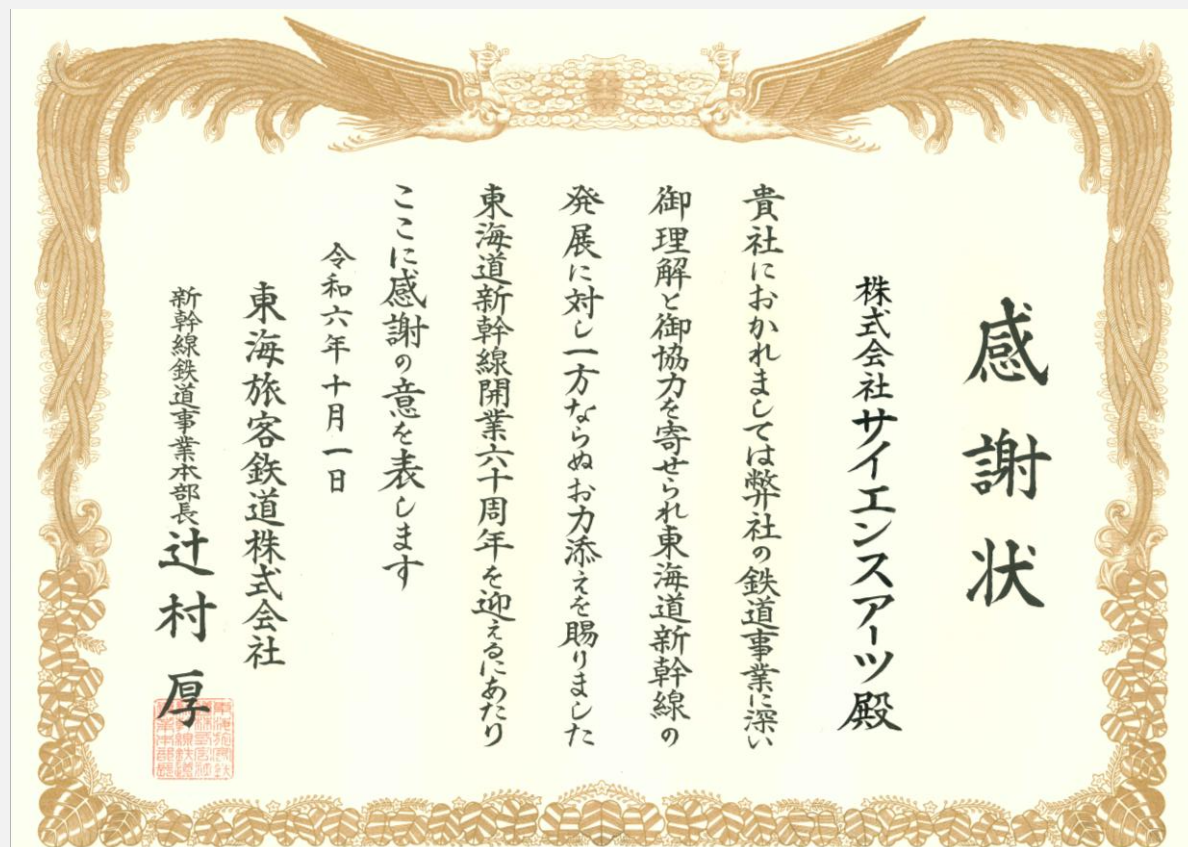 感謝状
株式会社サイエンスアーツ殿
貴社におかれましては弊社の鉄道事業に深い
御理解と御協力を寄せられ東海道新幹線の
発展に対し一方ならぬお力添えを賜りました
東海道新幹線開業六十周年を迎えるにあたり
ここに感謝の意を表します
令和六年十月一日
東海旅客鉄道株式会社
新幹線鉄道事業本部長辻村厚